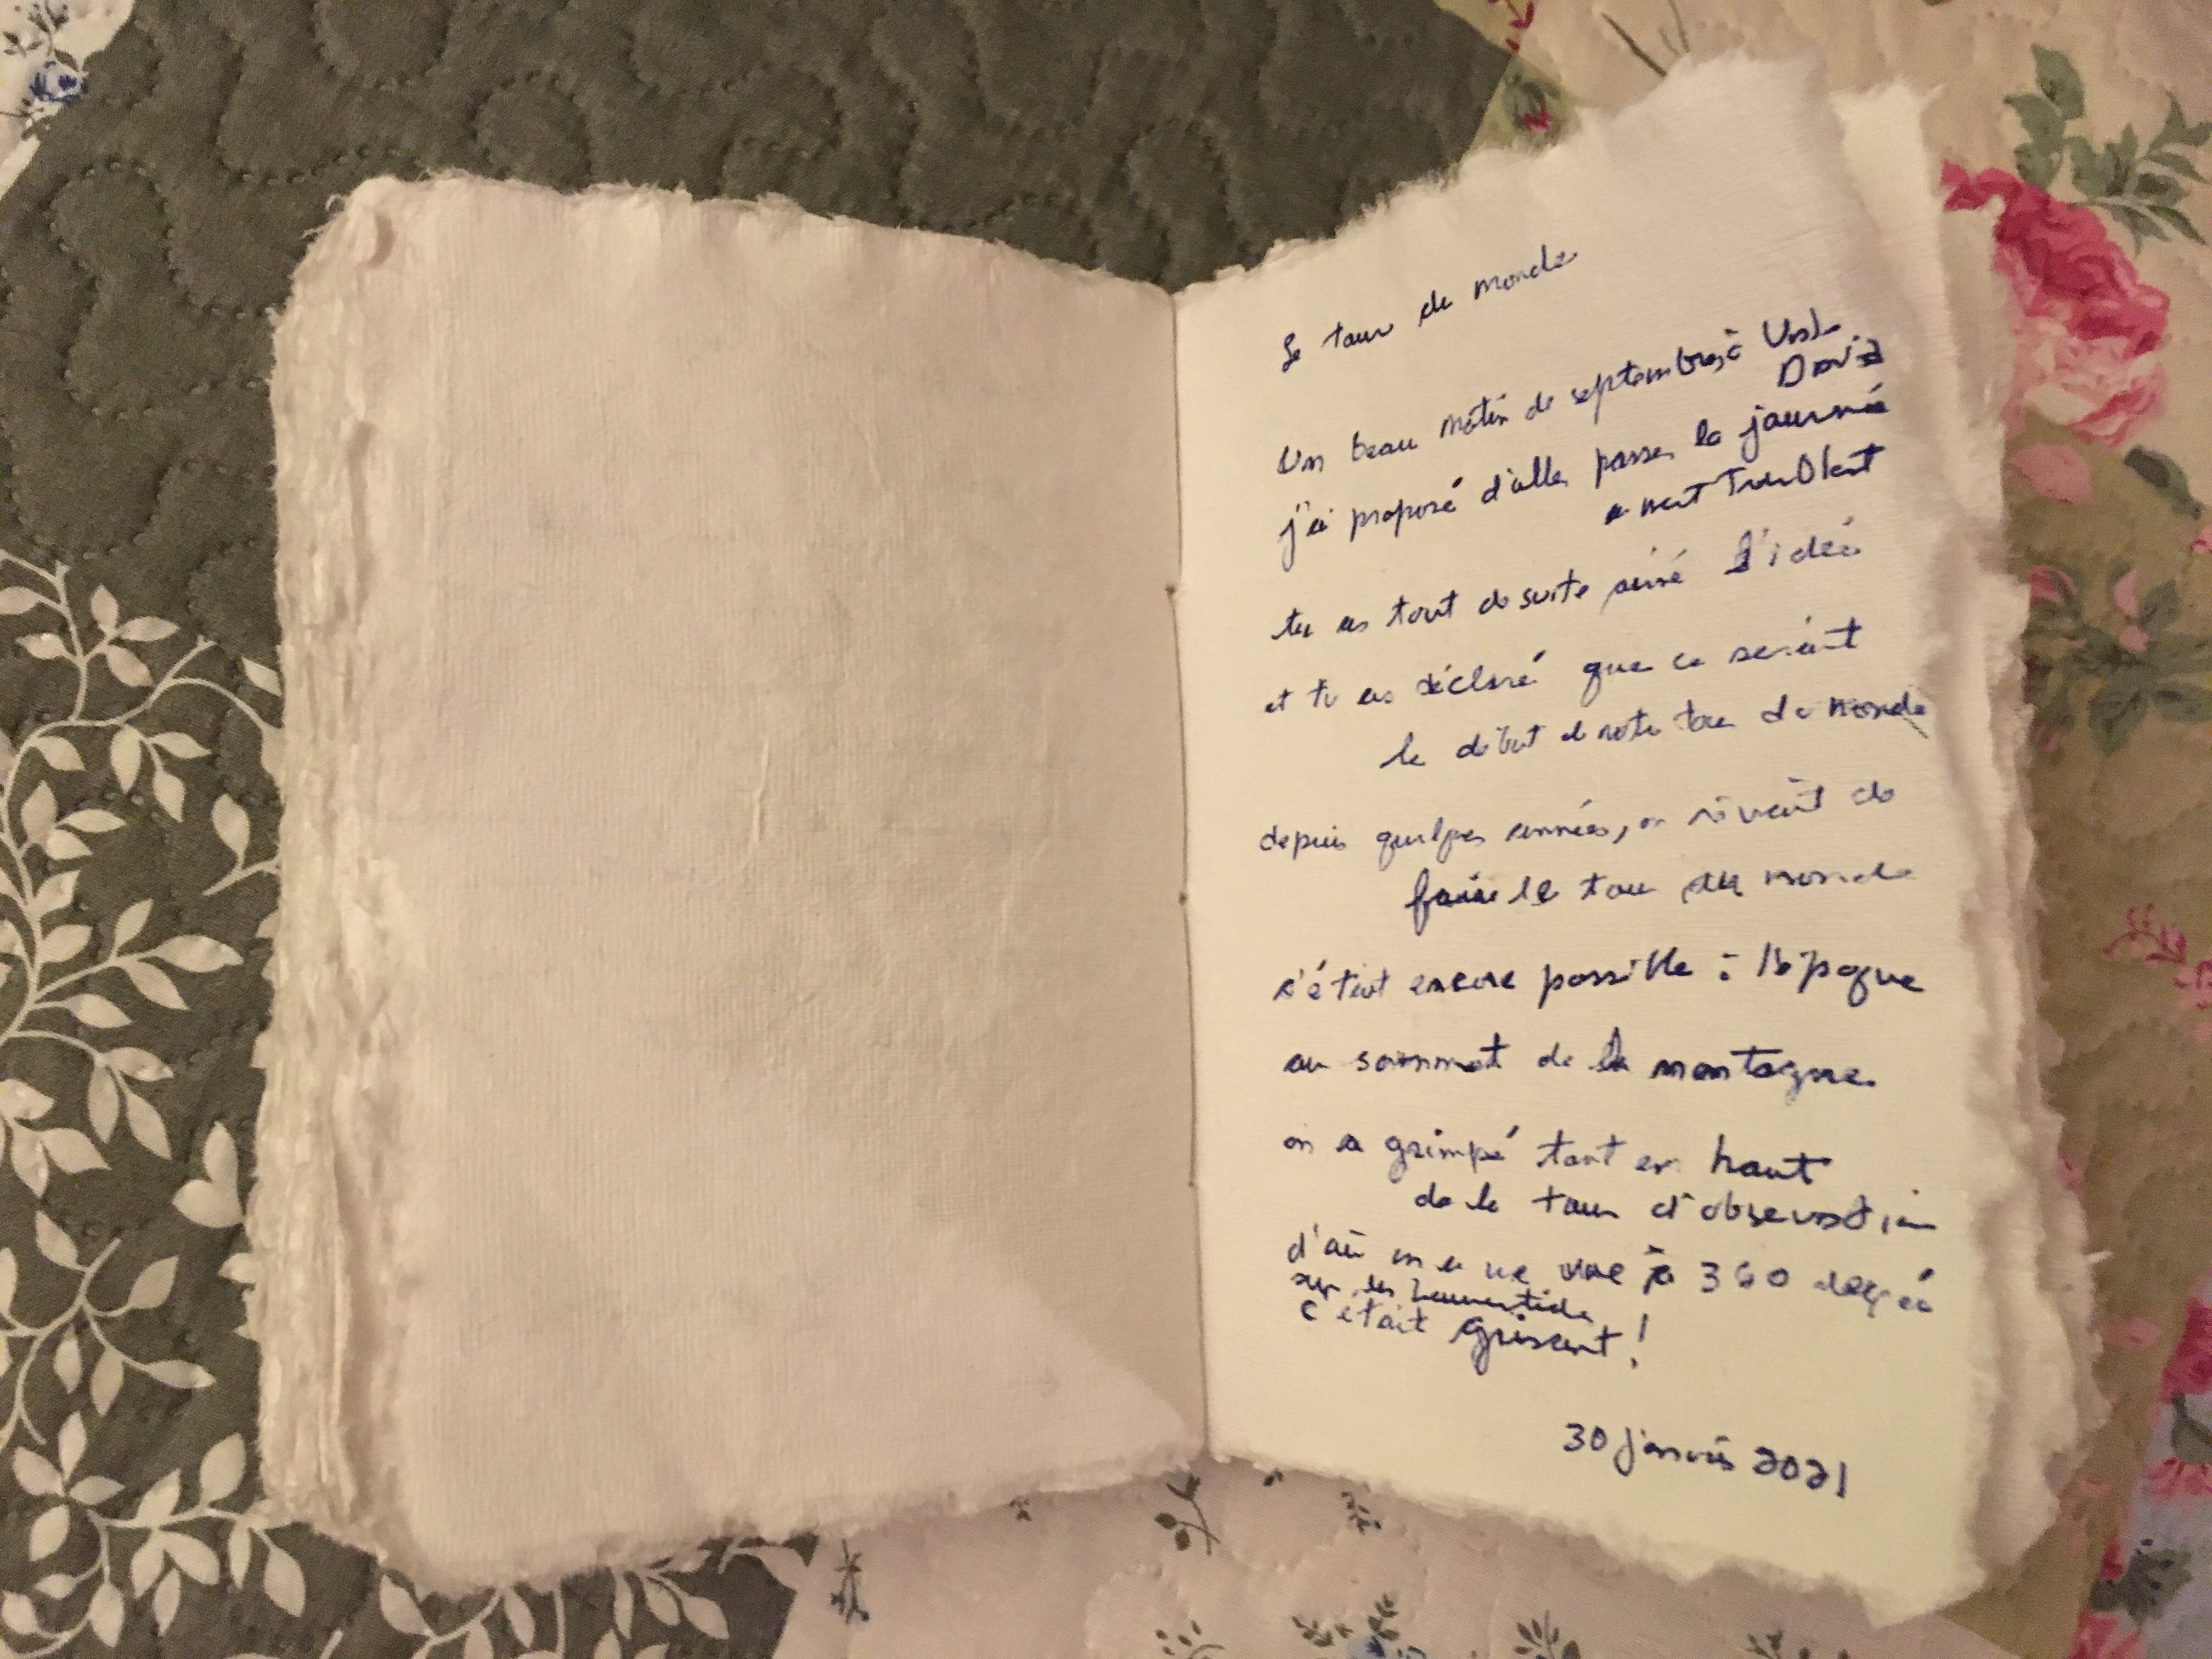 Le tour du monde
Un beau matin de septembre, à Val-
David
j'ai proposé d'aller passer la journée
à mont Tremblant
tu as tout de suite aimé l'idée
et tu as déclaré que ce serait
le début de notre tour du monde
depuis quelques années, on rêvait de
faire le tour du monde
c'était encore possible à l'époque
au sommet de la montagne
on a grimpé tout en haut
de la tour d'observation
d'où on a une vue à 360 degrés
sur les Laurentides
c'était grisant !
30 janvier 2021